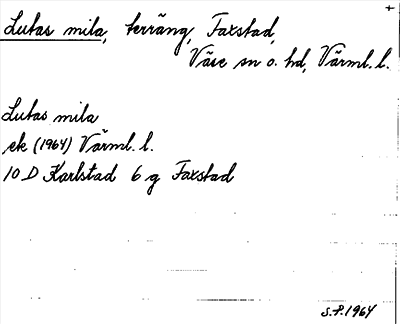 Lubas mila, terräng, Faxstad,
Väse sn o. hd, Värml. l.
Lubas mila
ek (1964) Värml. l.
10 D Karlstad 6 g Faxstad
S.P. 1964